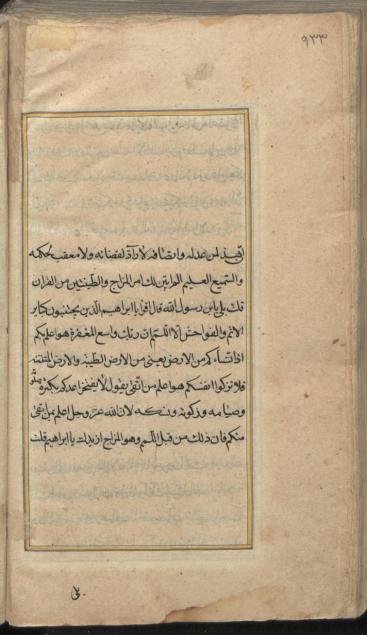 ٩٣٣
لمن عدله وانصافه لا رادّ لقضائه ولا معقب لحكمه
والسميع العليم المزاج والطينتين من القران
قلت بلى يابن رسول الله قال اقرا يا ابراهيم الذين يجتنبون كبائر
الاثم والفواحش الا اللمم ان ربك واسع المغفرة هو اعلم بكم
اذ انشاءكم من الارض يعنى من الارض الطيبة والارض المنتنة
فلا تزكوا انفسكم هو اعلم من اتقى يقول لا يفتخر احدكم بكثرة صلوته
وصيامه وزكوته ونسكه لان الله عز وجل اعلم بمن اتقى
منكم فان ذلك من قبل اللمم وهو المزاج ازيدك يا ابراهيم قلت
بلى